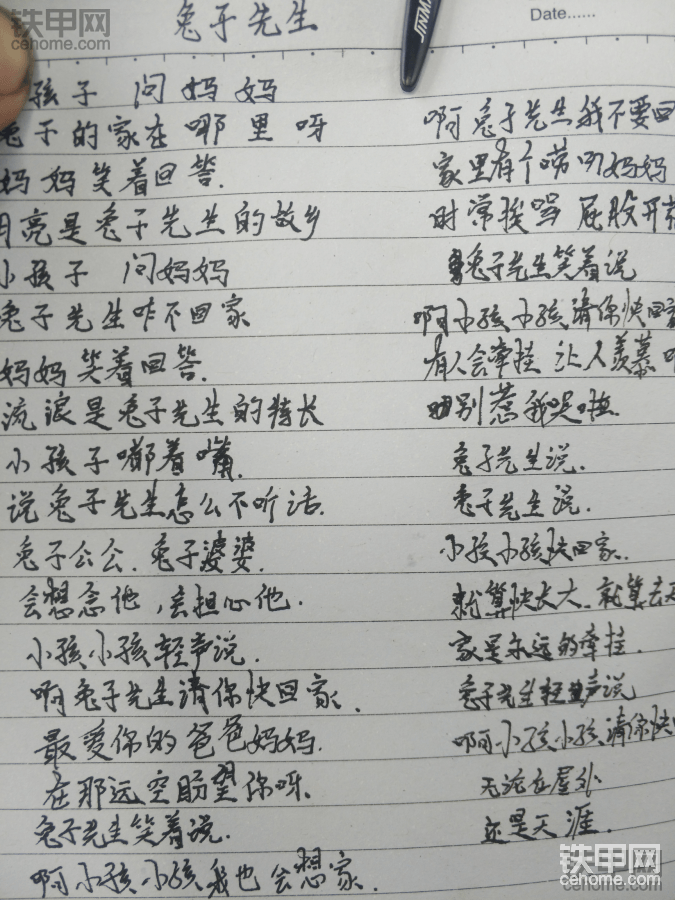 铁甲网
cehome.com
兔子先生
Date......
孩子 问妈妈
兔子的家在哪里呀
妈妈笑着回答.
月亮是兔子先生的故乡
小孩子 问妈妈
兔子先生咋不回家
妈妈笑着回答.
流浪是兔子先生的特长
小孩子嘟着嘴.
说兔子先生怎么不听话.
兔子公公.兔子婆婆.
会想念他,会担心他.
小孩小孩轻声说.
啊兔子先生请你快回家.
最爱你的爸爸妈妈.
在那远空盼望你呀.
兔子先生笑着说.
啊小孩小孩我也会想家.
啊兔子先生我不要回
家里有个唠叨妈妈
时常挨骂 屁股开
兔子先生笑着说
啊小孩小孩请你快回家
有人会牵挂 让人羡慕
别惹我哭啦.
兔子先生说.
兔子先生说.
小孩小孩快回家.
就算快长大.就算去
家是永远的牵挂.
兔子先生轻声说
啊小孩小孩请你快
无论在屋外
还是天涯.
铁甲网
cehome.com